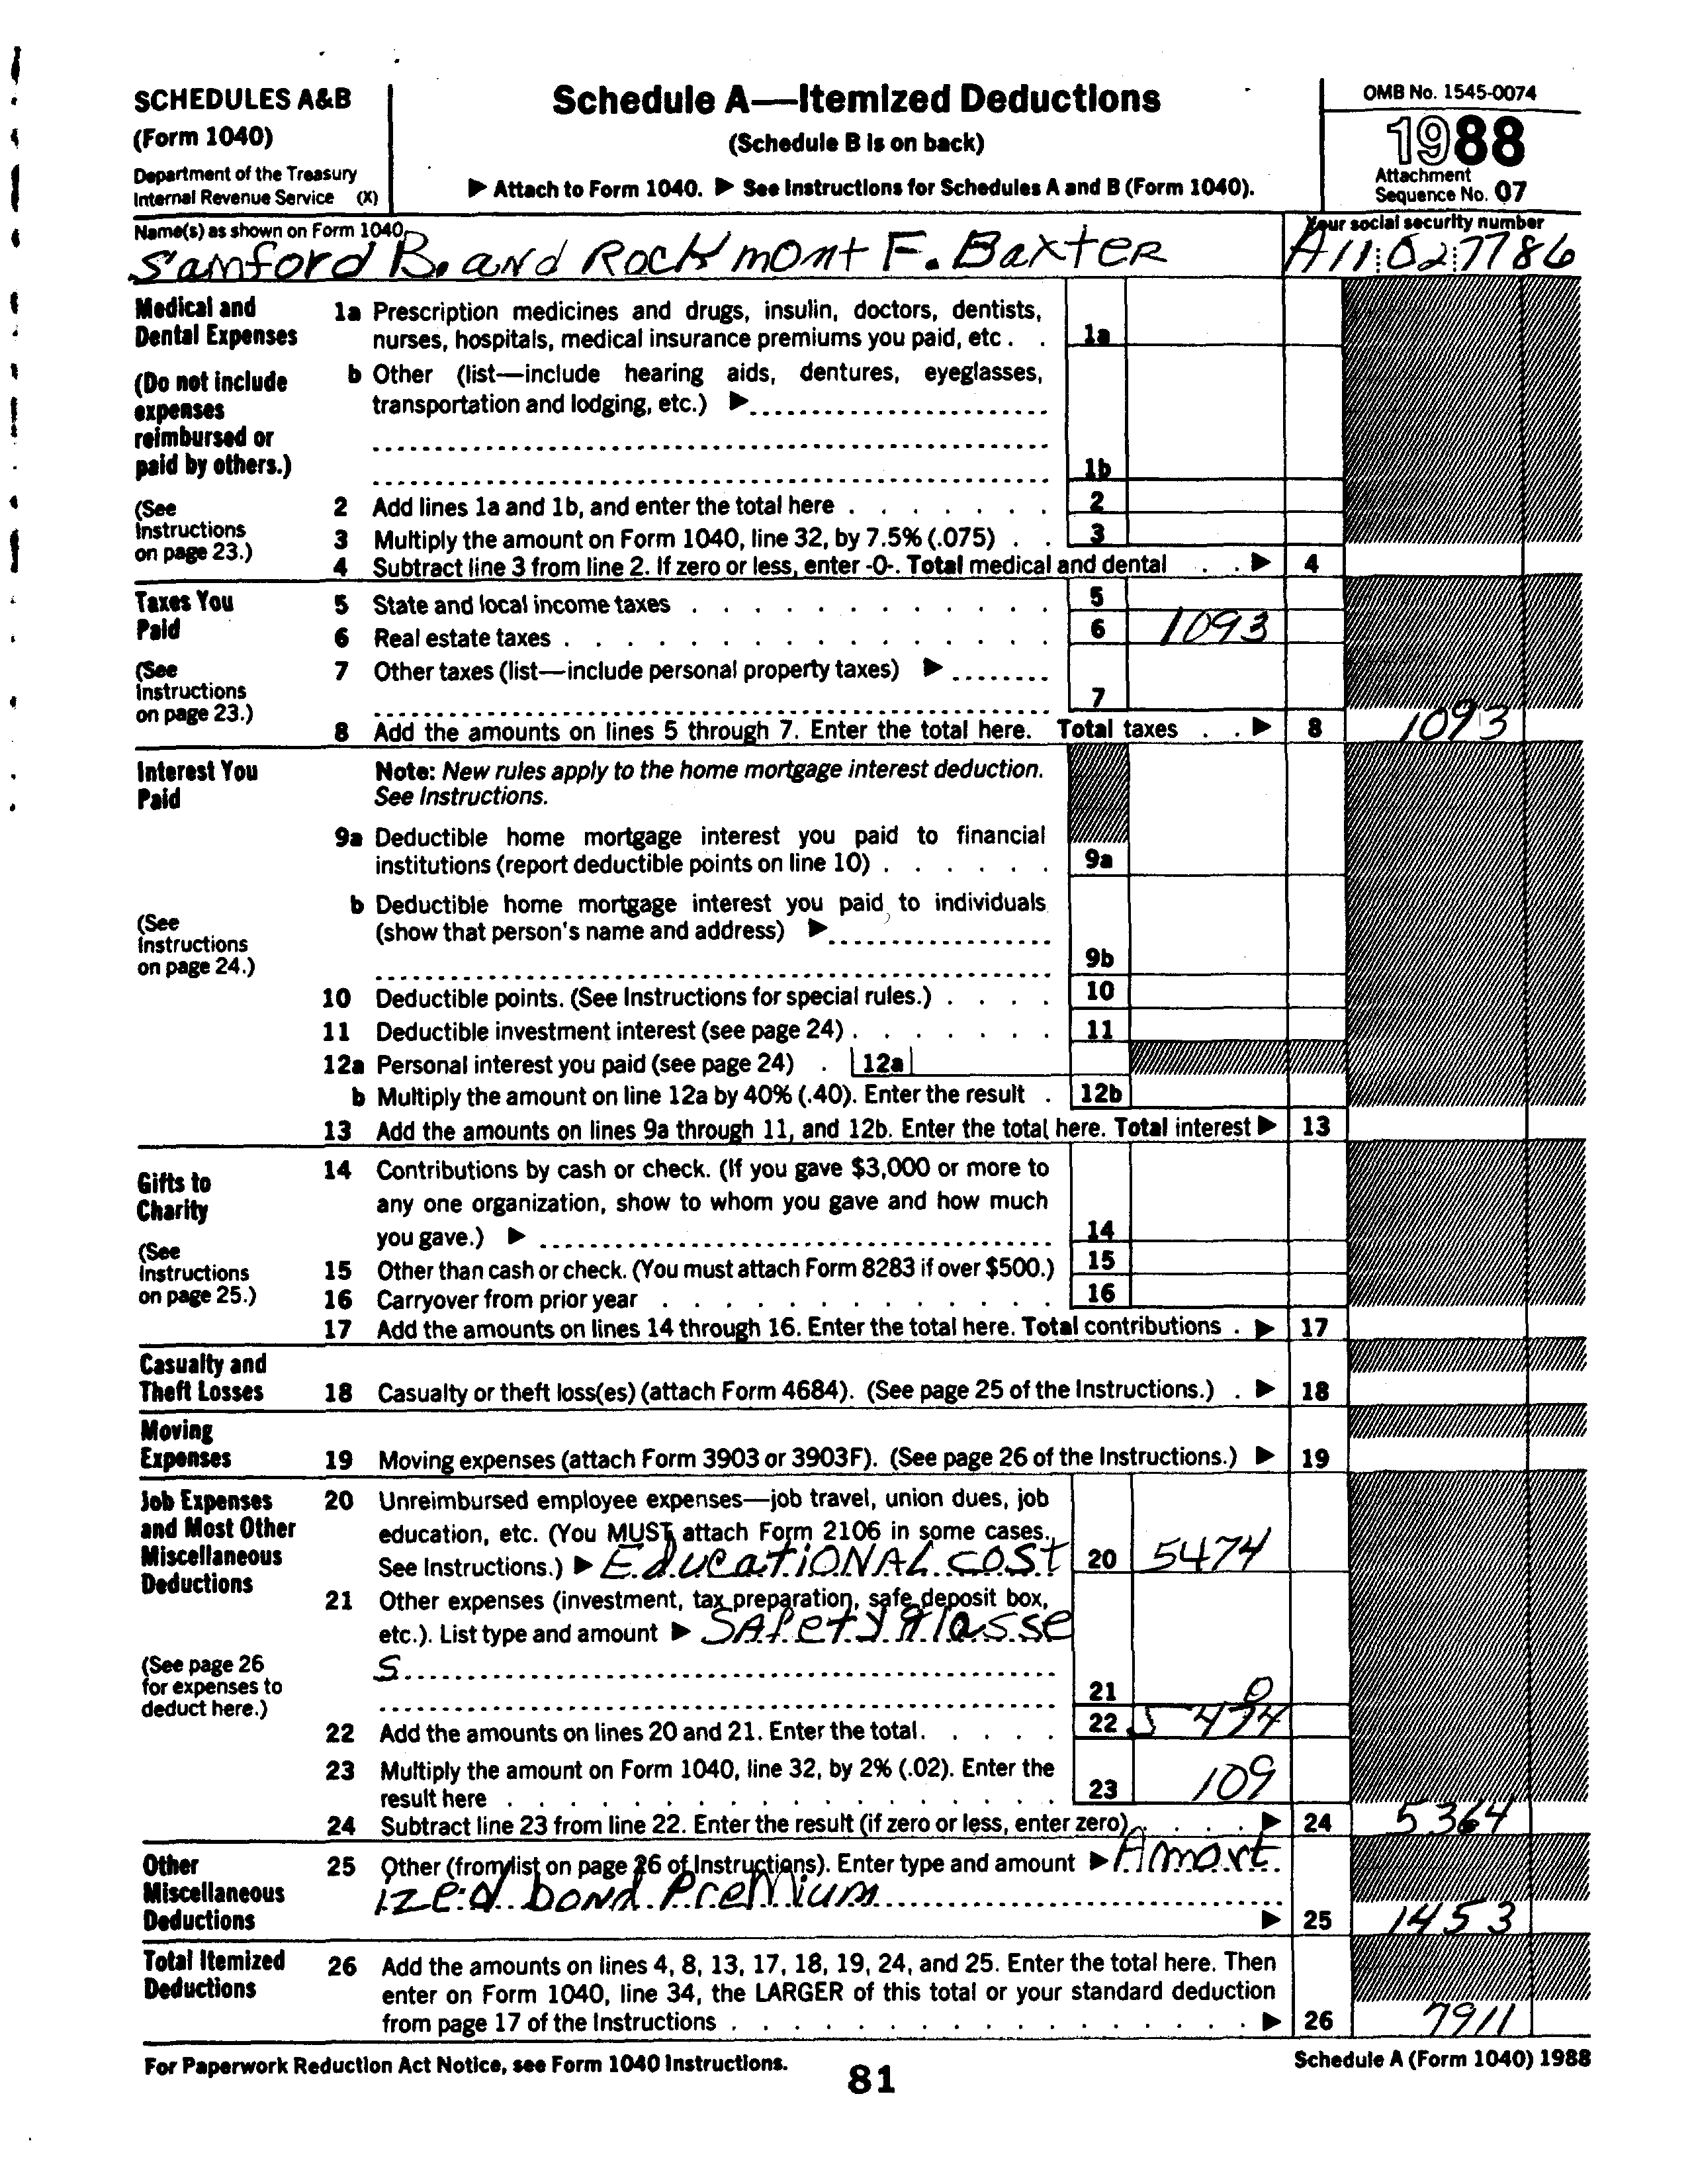 SCHEDULES A&B
(Form 1040)
Department of the Treasury
Internal Revenue Service (X)
Schedule A—Itemized Deductions
(Schedule B is on back)
▶ Attach to Form 1040. ▶ See Instructions for Schedules A and B (Form 1040).
OMB No. 1545-0074
1988
Attachment
Sequence No. 07
Name(s) as shown on Form 1040
Sanford B. and Rockmont F. Baxter
Your social security number
A11:02:7786
Medical and
Dental Expenses
(Do not include
expenses
reimbursed or
paid by others.)
(See
Instructions
on page 23.)
1a Prescription medicines and drugs, insulin, doctors, dentists,
nurses, hospitals, medical insurance premiums you paid, etc . . 1a
b Other (list—include hearing aids, dentures, eyeglasses,
transportation and lodging, etc.) ▶
1b
2 Add lines 1a and 1b, and enter the total here . . . . . . . 2
3 Multiply the amount on Form 1040, line 32, by 7.5% (.075) . . 3
4 Subtract line 3 from line 2. If zero or less, enter -0-. Total medical and dental . . ▶ 4
Taxes You
Paid
(See
Instructions
on page 23.)
5 State and local income taxes . . . . . . . . . . . . 5
6 Real estate taxes . . . . . . . . . . . . . . . . 6 1093
7 Other taxes (list—include personal property taxes) ▶
7
8 Add the amounts on lines 5 through 7. Enter the total here. Total taxes . . ▶ 8 1093
Interest You
Paid
(See
Instructions
on page 24.)
Note: New rules apply to the home mortgage interest deduction.
See Instructions.
9a Deductible home mortgage interest you paid to financial
institutions (report deductible points on line 10) . . . . . . 9a
b Deductible home mortgage interest you paid to individuals
(show that person's name and address) ▶
9b
10 Deductible points. (See Instructions for special rules.) . . . . 10
11 Deductible investment interest (see page 24) . . . . . . . 11
12a Personal interest you paid (see page 24) . 12a
b Multiply the amount on line 12a by 40% (.40). Enter the result . 12b
13 Add the amounts on lines 9a through 11, and 12b. Enter the total here. Total interest ▶ 13
Gifts to
Charity
(See
Instructions
on page 25.)
14 Contributions by cash or check. (If you gave $3,000 or more to
any one organization, show to whom you gave and how much
you gave.) ▶ 14
15 Other than cash or check. (You must attach Form 8283 if over $500.) 15
16 Carryover from prior year . . . . . . . . . . . . . 16
17 Add the amounts on lines 14 through 16. Enter the total here. Total contributions . ▶ 17
Casualty and
Theft Losses
18 Casualty or theft loss(es) (attach Form 4684). (See page 25 of the Instructions.) . ▶ 18
Moving
Expenses
19 Moving expenses (attach Form 3903 or 3903F). (See page 26 of the Instructions.) ▶ 19
Job Expenses
and Most Other
Miscellaneous
Deductions
(See page 26
for expenses to
deduct here.)
20 Unreimbursed employee expenses—job travel, union dues, job
education, etc. (You MUST attach Form 2106 in some cases.
See Instructions.) ▶ Educational cost 20 5474
21 Other expenses (investment, tax preparation, safe deposit box,
etc.). List type and amount ▶ Safety glasse
s
21 0
22 Add the amounts on lines 20 and 21. Enter the total. . . . . 22 5474
23 Multiply the amount on Form 1040, line 32, by 2% (.02). Enter the
result here . . . . . . . . . . . . . . . . . 23 109
24 Subtract line 23 from line 22. Enter the result (if zero or less, enter zero). . . . . ▶ 24 5364
Other
Miscellaneous
Deductions
25 Other (from list on page 26 of Instructions). Enter type and amount ▶ Amort
ized bond Premium
▶ 25 1453
Total Itemized
Deductions
26 Add the amounts on lines 4, 8, 13, 17, 18, 19, 24, and 25. Enter the total here. Then
enter on Form 1040, line 34, the LARGER of this total or your standard deduction
from page 17 of the Instructions . . . . . . . . . . . . . . . . . ▶ 26 7911
For Paperwork Reduction Act Notice, see Form 1040 Instructions.
81
Schedule A (Form 1040) 1988